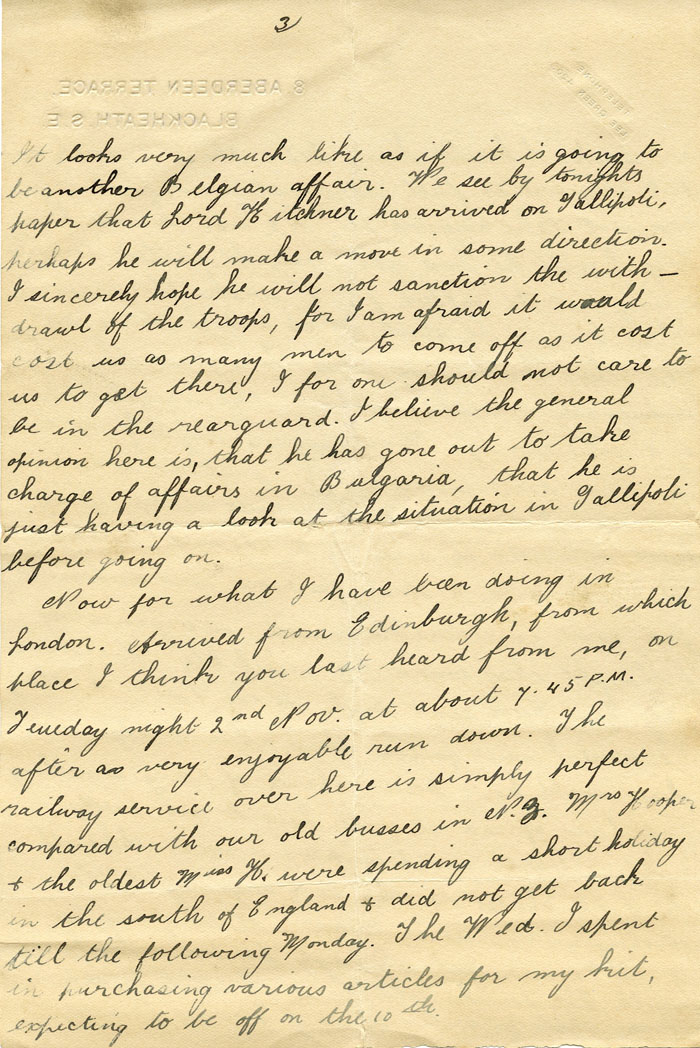 3
8. ABERDEEN TERRACE,
BLACKHEATH. S.E
TELEPHONE
LEE GREEN
It looks very much like as if it is going to
be another Belgian affair. We see by tonights
paper that Lord Kitchner has arrived on Gallipoli,
perhaps he will make a move in some direction.
I sincerely hope he will not sanction the with-
drawl of the troops, for I am afraid it would
cost us as many men to come off as it cost
us to get there, I for one should not care to
be in the rearguard. I believe the general
opinion here is, that he has gone out to take
charge of affairs in Bulgaria, that he is
just having a look at the situation in Gallipoli
before going on.
Now for what I have been doing in
London. Arrived from Edinburgh, from which
place I think you last heard from me, on
Teueday night 2nd Nov. at about 7.45 P.M.
after a very enjoyable run down. The
railway service over here is simply perfect
compared with our old busses in N.Z. Mrs Hooper
& the oldest Miss H. were spending a short holiday
in the south of England & did not get back
till the following Monday. The Wed. I spent
in purchasing various articles for my kit,
expecting to be off on the 10th.